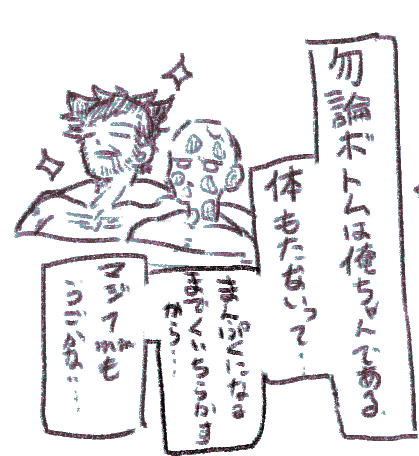 勿論ボトムは俺ちゃんである
体もたないって…
まんぷくになる
までくいちらかす
から…
マジ1mmも
うごかない…